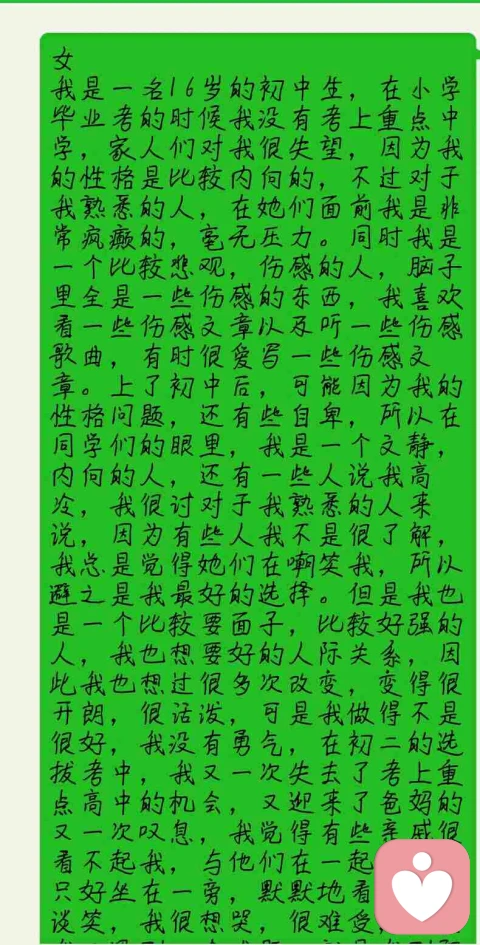 女
我是一名16岁的初中生，在小学
毕业考的时候我没有考上重点中
学，家人们对我很失望，因为我
的性格是比较内向的，不过对于
我熟悉的人，在她们面前我是非
常疯癫的，毫无压力。同时我是
一个比较悲观，伤感的人，脑子
里全是一些伤感的东西，我喜欢
看一些伤感文章以及听一些伤感
歌曲，有时很爱写一些伤感文
章。上了初中后，可能因为我的
性格问题，还有些自卑，所以在
同学们的眼里，我是一个文静，
内向的人，还有一些人说我高
冷，我很讨对于我熟悉的人来
说，因为有些人我不是很了解，
我总是觉得她们在嘲笑我，所以
避之是我最好的选择。但是我也
是一个比较要面子，比较好强的
人，我也想要好的人际关系，因
此我也想过很多次改变，变得很
开朗，很活泼，可是我做得不是
很好，我没有勇气，在初二的选
拔考中，我又一次失去了考上重
点高中的机会，又迎来了爸妈的
又一次叹息，我觉得有些亲戚很
看不起我，与他们在一起
只好坐在一旁，默默地看
谈笑，我很想哭，很难受，